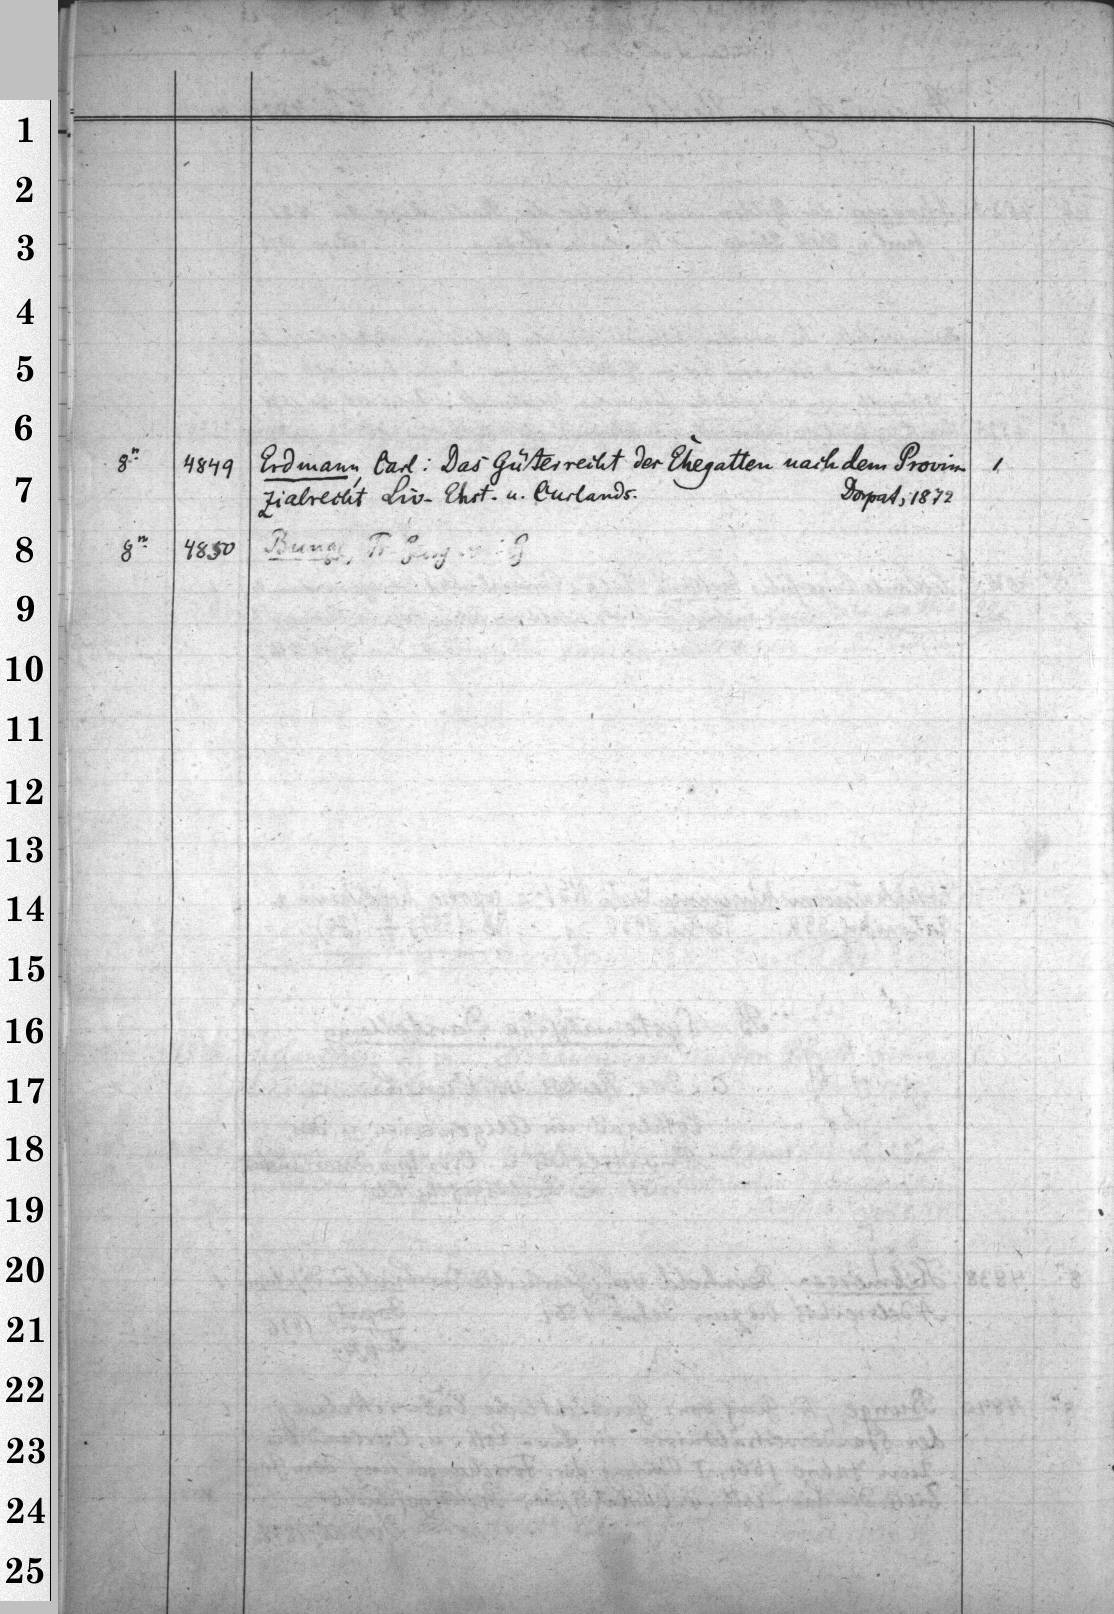 1
2
3
4
5
6
8º 4849 Erdmann, Carl: Das Güterrecht der Ehegatten nach dem Provin 1
7
zialrecht Liv- Ehst- u. Curlands. Dorpat, 1872
8
8º 4850 Bunge, Fr Georg v:
9
10
11
12
13
14
15
16
17
18
19
20
21
22
23
24
25